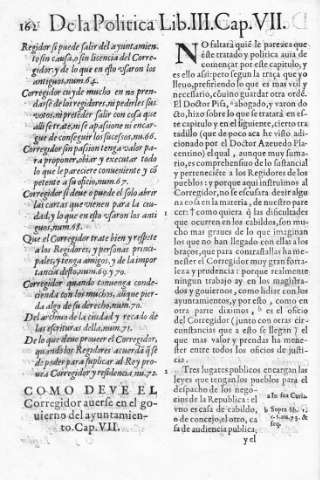 162 De la Politica Lib.III.Cap.VII.
Regidor si puede salir del ayuntamien-
to sin causa, o sin licencia del Corre-
gidor: y de lo que en esto vsaron los
antiguos, num.64.
Corregidor cuyde mucho en no pren-
darse de los regidores, ni pederles sus
votos, ni pretender salir con cosa que
alli se trate, ni se apassione ni encar-
gue de conseguir los sucessos, nu.66.
Corregidor sin passion tenga valor pa-
ra proponer, ohiar y executar todo
lo que le pareciere conueniente y cō
petente a su oficio, num.67.
Corregidor si deue o puede el solo abrir
las cartas que vienen para la ciu-
dad, y lo que en esto vsaron los anti
guos, num.68.
Que el Corregidor trate bien y respete
a los Regidores, y personas princi-
pales, y tenga amigos, y de la impor
tancia desto, nu.69. y 70.
Corregidor quando conuenga conde-
cienda con los muchos, aũque pier-
da algo de su derecho, num.70.
Del archiuo de la ciudad y recado de
las escrituras della, num.71.
De lo que deue proueer el Corregidor,
quando los Regidores acuerdā q̃ se
de poder para suplicar al Rey pro-
uea Corregidor y residencia, nu.72.
COMO DEVE EL
Corregidor auerse en el go-
uierno del ayuntamien-
to. Cap. VII.
NO faltará quiē le parezca que
este tratado y politica auia de
començar por este capitulo, y
es ello assi: pero segun la traça que yo
lleuo, prefiriendo lo que es mas vtil y
necessario, cōuino guardar otra ordē.
El Doctor Pisa, a abogado, y varon do
cto, hizo sobre lo que se tratará en es-
te capitulo y en el siguiente, cierto tra
tadillo (que de poco aca he visto adi-
cionado por el Doctor Azeuedo Pla-
centino) el qual, aunque muy suma-
rio, es comprehensiuo de lo sustancial
y perteneciēte a los Regidores de los
pueblos: y porque aqui instruimos al
Corregidor, no le escusará dezir algu
na cosa en la materia, de nuestro pare
cer: ¶ como quiera q̃ las dificultades
que ocurren en los cabildos, son mu-
cho mas graues de lo que imaginan
los que no han llegado con ellas a los
braços, que para contrastallas ha me-
nester el Corregidor muy gran forta-
leza y prudencia: porque realmente
ningun trabajo ay en los magistra-
dos y gouiernos, como lidiar con los
ayuntamientos, y por esto, como en
otra parte diximos, b es el oficio
del Corregidor (junto con otras cir-
constancias que a esto se llegan) el
que mas valor y prendas ha mene-
ster entre todos los oficios de justi-
cia.
Tres lugares publicos encargan las
leyes que tengan los pueblos para el
despacho de los nego-
cios de la Republica: el
vno es casa de cabildo,
o de concejo, el otro, ca
sa de audiencia publica,
y el
a In sua Curia.